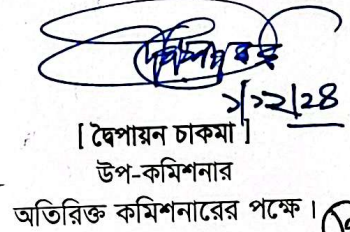 ১/১২/২৪
[ দ্বৈপায়ন চাকমা ]
উপ-কমিশনার
অতিরিক্ত কমিশনারের পক্ষে।